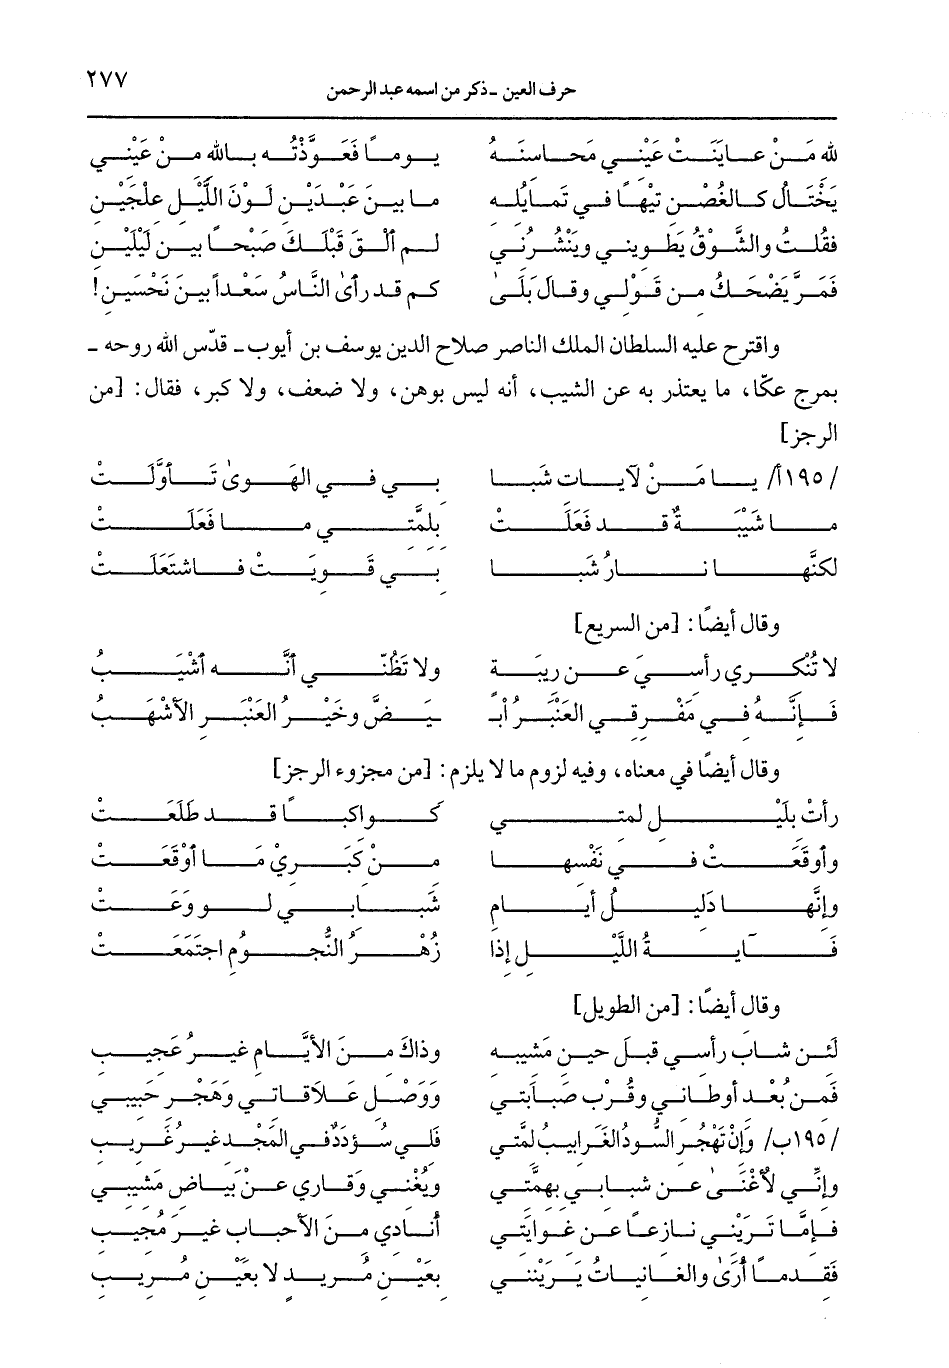 حرف العين - ذكر من اسمه عبد الرحمن ٢٧٧
لله مَنْ عايَنَتْ عَيْني مَحاسنَهُ يوماً فَعَوَّذْتُه بالله منْ عَيْني
يَخْتَالُ كالغُصْن تيْهاً في تَمايُله ما بينَ عَبْدَيْن لَوْنَ اللَّيْل علْجَيْن
فقُلتُ والشَّوْقُ يَطْويني ويَنْشُرُني لم ألْقَ قَبْلَكَ صَبْحاً بين لَيْلَيْن
فَمَرَّ يَضْحَكُ من قَوْلي وقال بَلَىٰ كم قد رأىٰ النَّاسُ سَعْداً بينَ نَحْسَين!
واقترح عليه السلطان الملك الناصر صلاح الدين يوسف بن أيوب - قدّس الله روحه -
بمرج عكّا، ما يعتذر به عن الشيب، أنه ليس بوهن، ولا ضعف، ولا كبر، فقال: [من
الرجز]
/١٩٥أ/ يا مَنْ لآيات شَبا بي في الهَوىٰ تَأوَّلَتْ
ما شَيْبَةٌ قد فَعَلَتْ بلمَّتي ما فَعَلَتْ
لكنَّها نارُ شَبا بي قَويَتْ فاشتَعَلَتْ
وقال أيضًا: [من السريع]
لا تُنْكري رأسيَ عن ريبَة ولا تَظُنّي أنَّه أشْيَبُ
فَإنَّهُ في مَفْرقي العَنْبَرُ أبـ ـيَضَّ وخَيْرُ العَنْبَر الأشْهَبُ
وقال أيضًا في معناه، وفيه لزوم ما لا يلزم: [من مجزوء الرجز]
رأتْ بلَيْل لمتي كواكبًا قد طَلَعَتْ
وأوقَعَتْ في نَفْسها منْ كبَريْ مَا أوْقَعَتْ
وإنَّها دَليلُ أيام شَبابي لو وَعَتْ
فَآيةُ اللَّيْل إذا زُهْرُ النُّجُوم اجتَمَعَتْ
وقال أيضًا: [من الطويل]
لَئن شابَ رأسي قبلَ حين مَشيبه وذاكَ منَ الأيَّام غيرُ عَجيب
فَمن بُعْد أوطاني وقُرْب صَبابَتي وَوَصْل عَلاقاتي وَهَجْر حَبيبي
/١٩٥ب/ وَإنْ تَهْجُر السُّودُ الغَرابيبُ لمَّتي فَلي سُؤدَدٌ في المَجْد غيرُ غَريب
وإنِّي لأغْنَىٰ عن شبابي بهمَّتي ويُغْني وَقاري عنْ بَياض مَشيبي
فإمَّا تَرَيْني نازعاً عن غوايَتي أنادي منَ الأحباب غيرَ مُجيب
فَقدماً أُرَىٰ والغانياتُ يَرَيْنَني بعَيْن مُريد لا بعَيْن مُريب